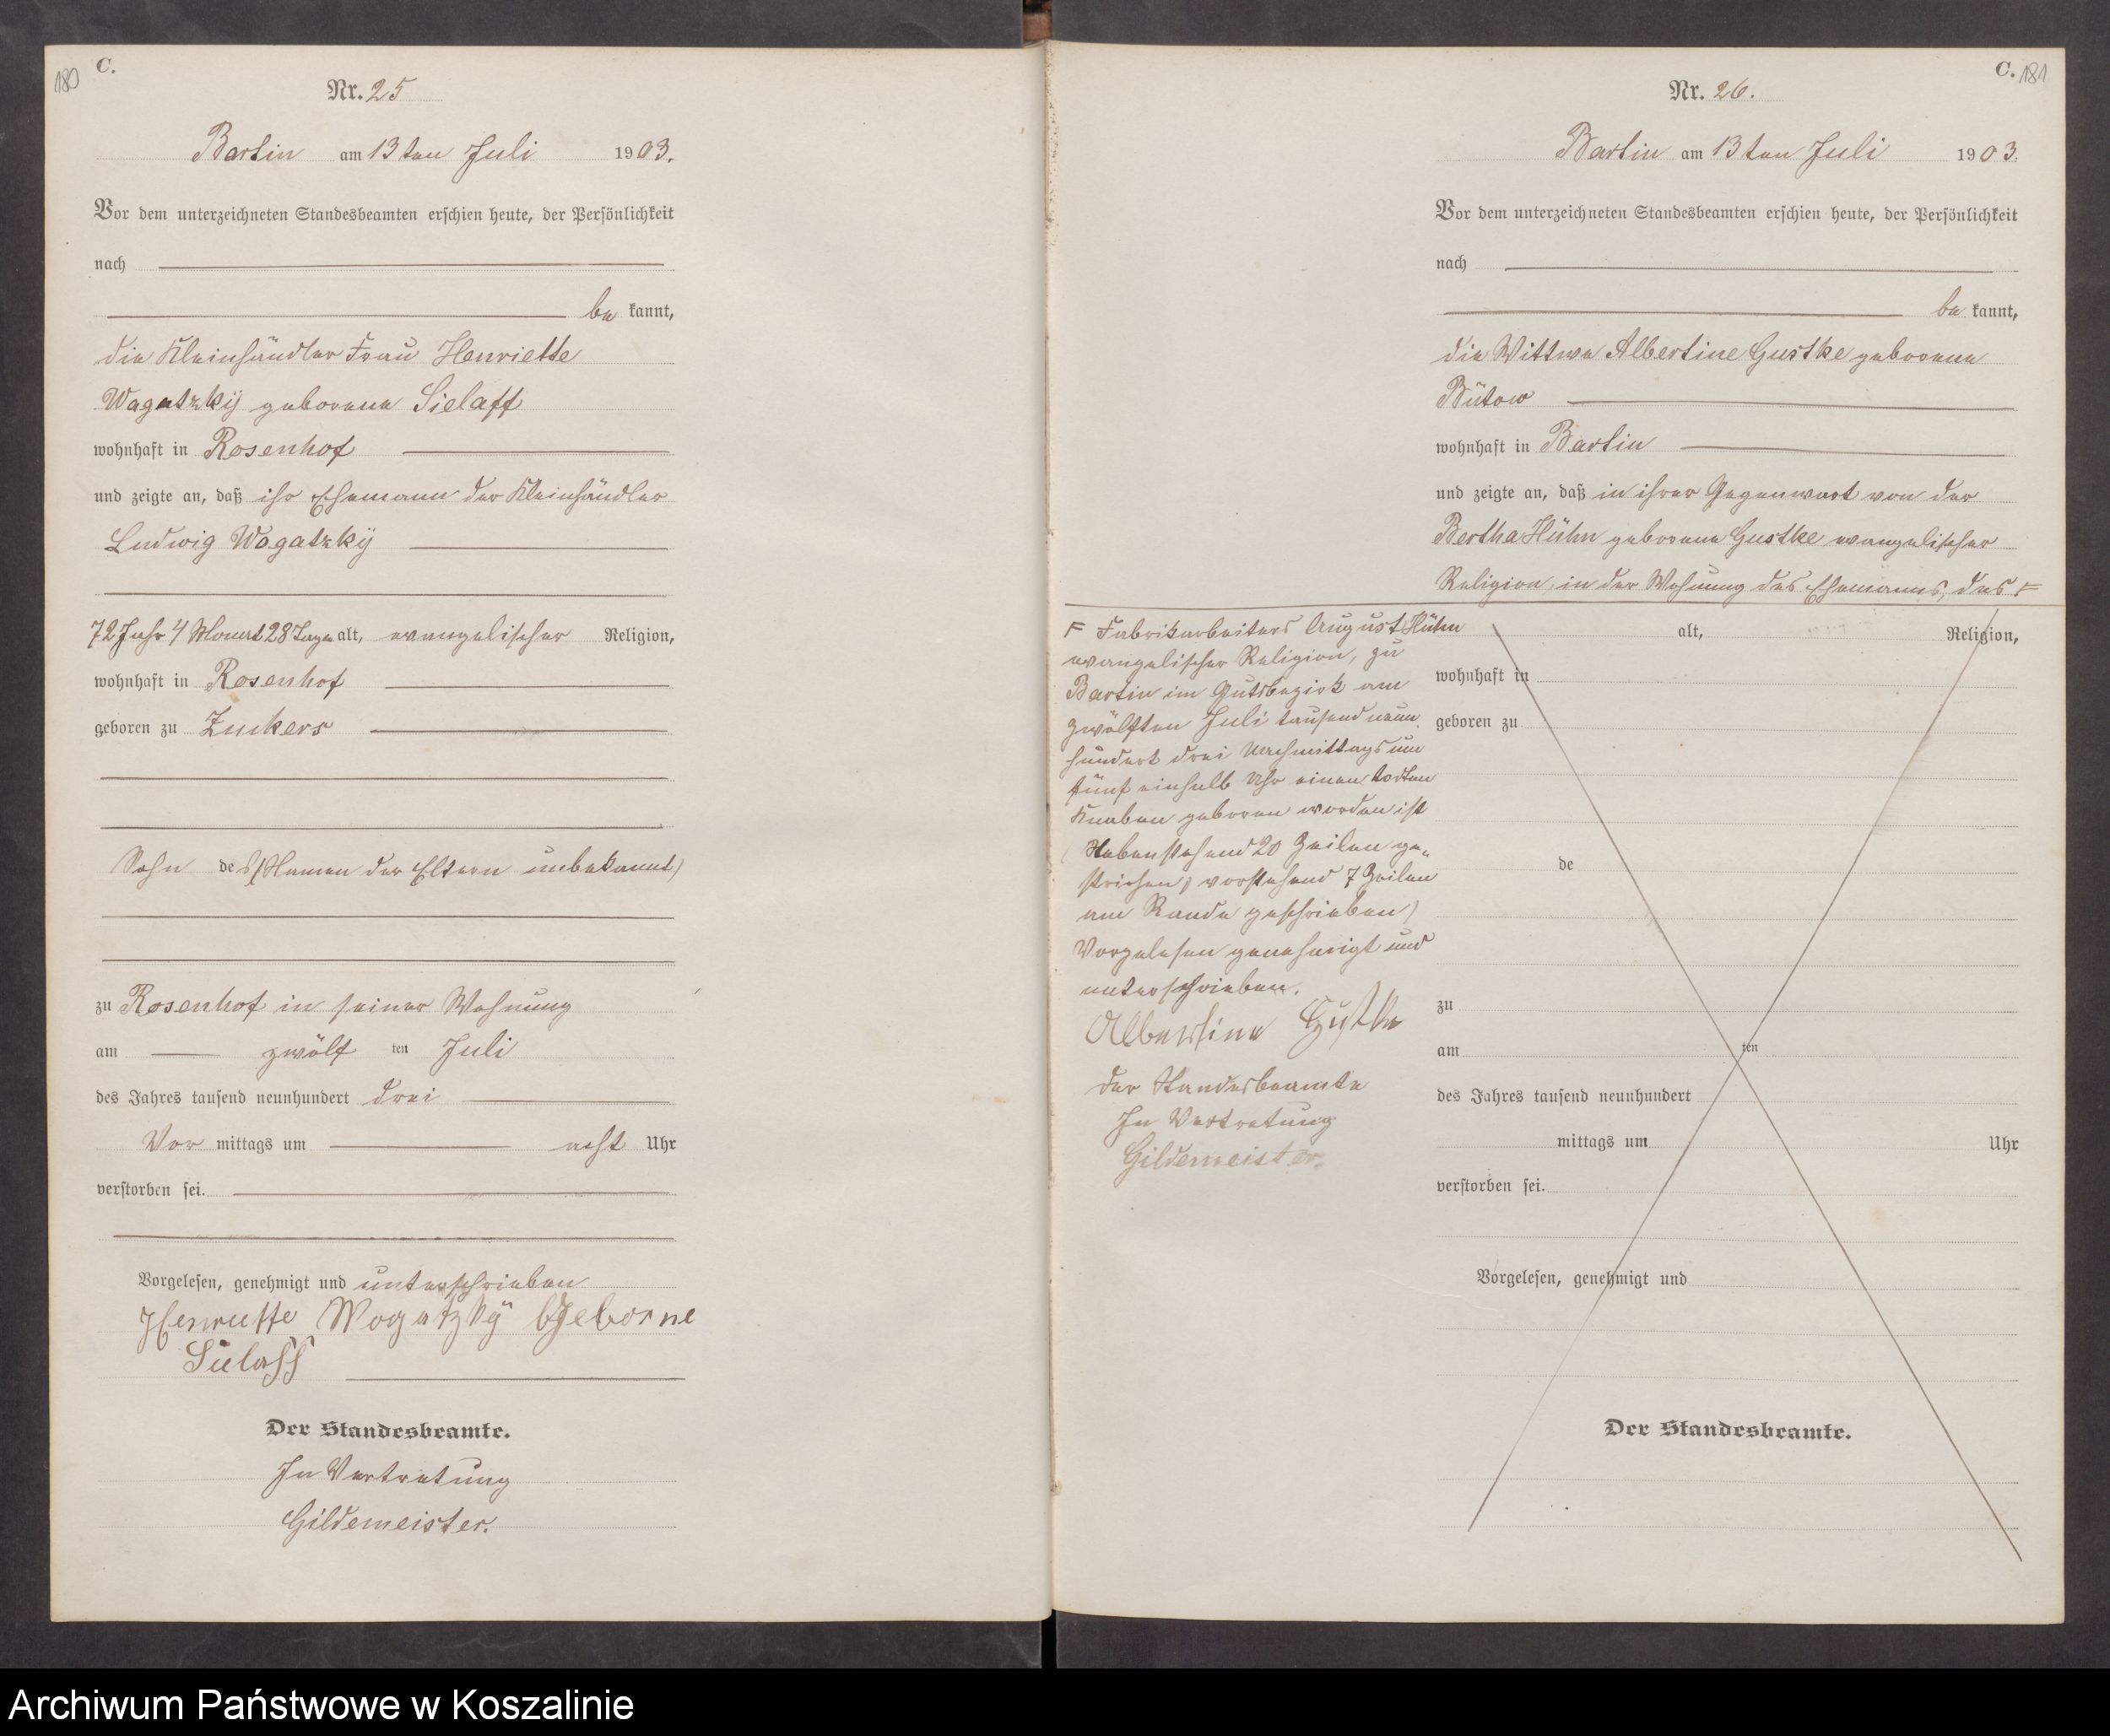 180
C.
Nr. 25
Bartin am 13ten Juli 1903.
Vor dem unterzeichneten Standesbeamten erschien heute, der Persönlichkeit
nach
be kannt,
die Kleinhändler Frau Henriette
Wogatzky geborene Sielaff
wohnhaft in Rosenhof
und zeigte an, daß ihr Ehemann der Kleinhändler
Ludwig Wogatzky
72 Jahr 4 Monat 28 Tage alt, evangelischer Religion,
wohnhaft in Rosenhof
geboren zu Zuckers
Sohn des (Namen der Eltern unbekannt)
zu Rosenhof in seiner Wohnung
am zwölf ten Juli
des Jahres tausend neunhundert drei
Vor mittags um acht Uhr
verstorben sei.
Vorgelesen, genehmigt und unterschrieben
Henriette Wogatzky Geborne
Sielaff
Der Standesbeamte.
In Vertretung
Gildemeister.
C. 181
Nr. 26.
Bartin am 13ten Juli 1903.
Vor dem unterzeichneten Standesbeamten erschien heute, der Persönlichkeit
nach
be kannt,
die Wittwe Albertine Gustke geborene
Bütow
wohnhaft in Bartin
und zeigte an, daß in ihrer Gegenwart von der
Bertha Hühn geborene Gustke evangelischer
Religion, in der Wohnung des Ehemanns, des F
F Fabrikarbeiters August Hühn
evangelischer Religion, zu
Bartin im Gutsbezirk am
zwölften Juli tausend neun
hundert drei Nachmittags um
fünf einhalb Uhr einen todten
Knaben geboren worden ist
(Nebenstehend 20 Zeilen ge-
strichen, vorstehend 7 Zeilen
am Rande geschrieben)
Vorgelesen genehmigt und
unterschrieben.
Albertine Gustke
Der Standesbeamte
In Vertretung
Gildemeister.
alt, Religion,
wohnhaft in
geboren zu
de
zu
am ten
des Jahres tausend neunhundert
mittags um Uhr
verstorben sei.
Vorgelesen, genehmigt und
Der Standesbeamte.
Archiwum Państwowe w Koszalinie